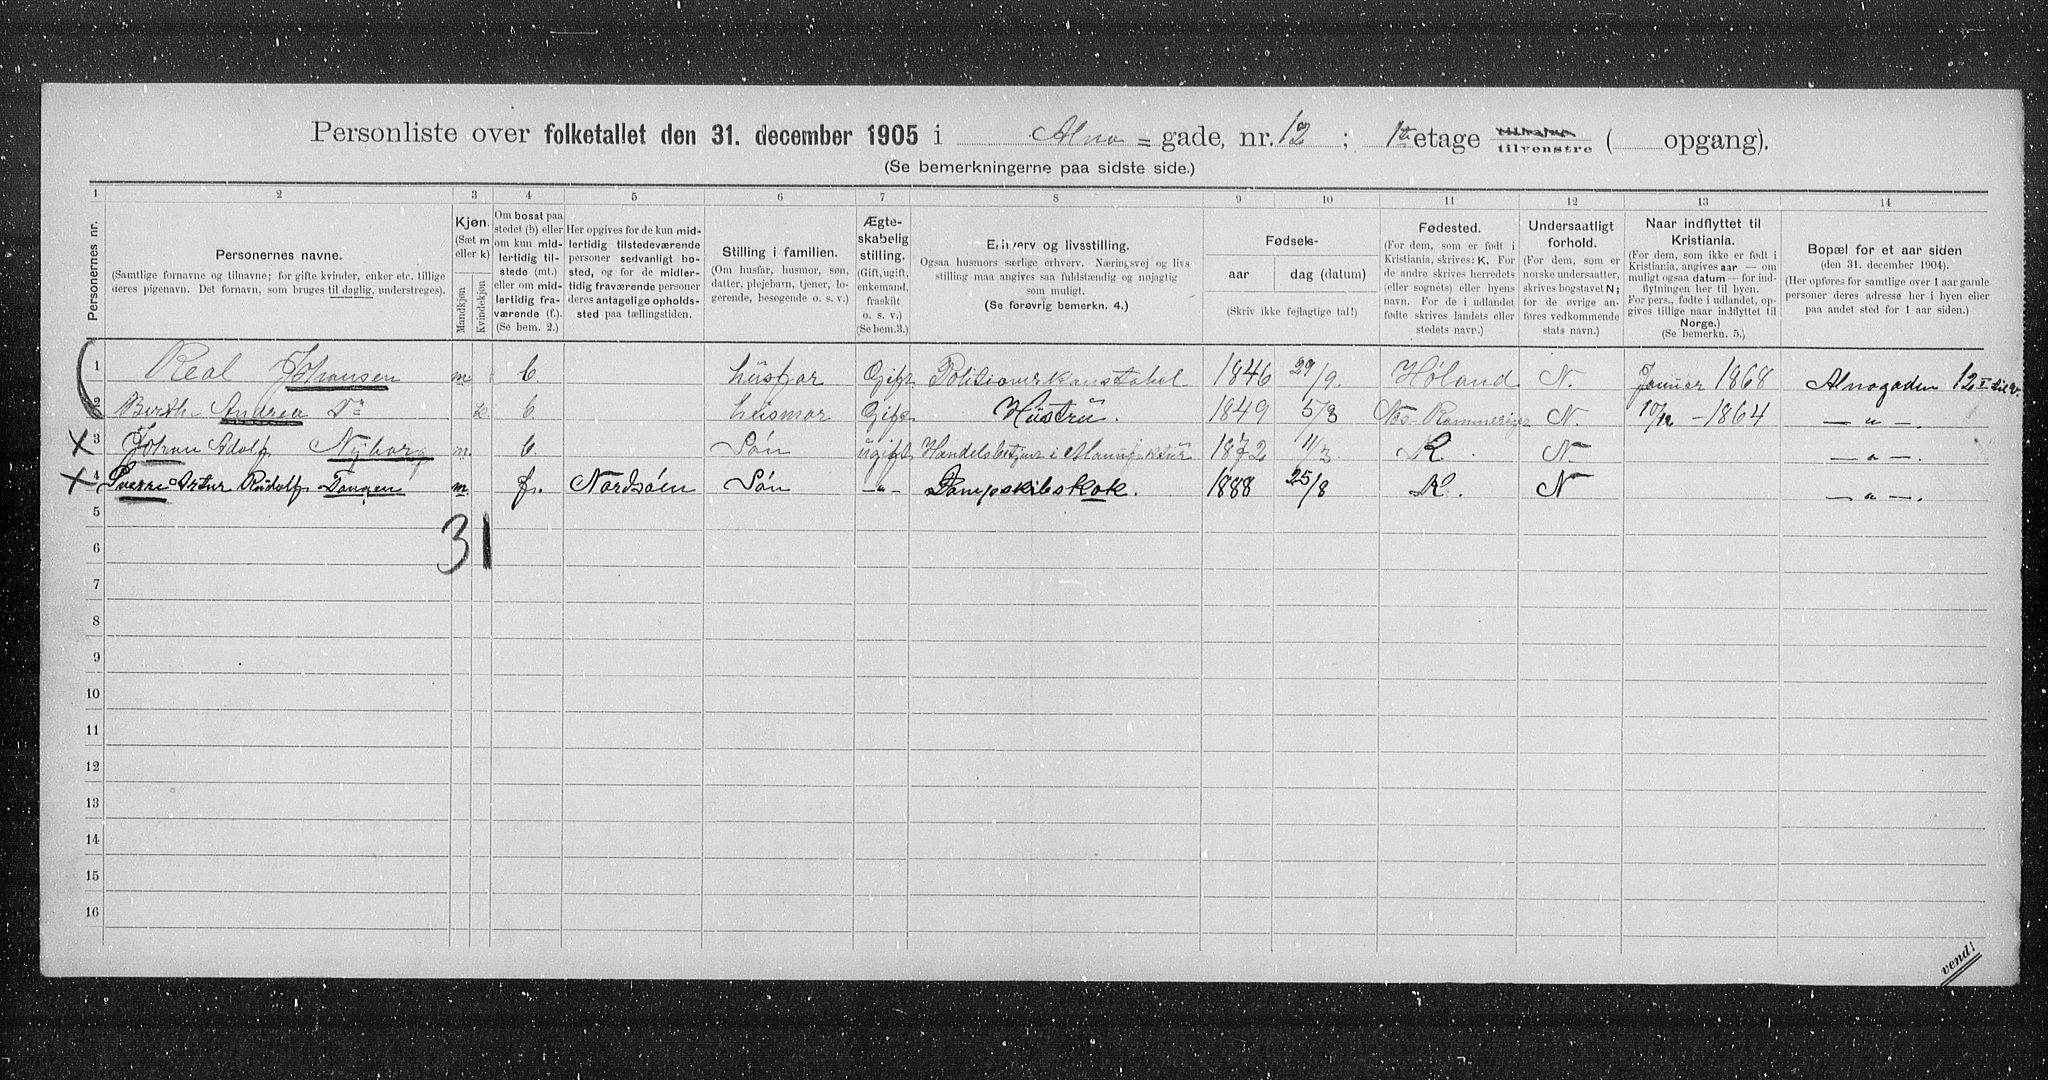 Personliste over folketallet den 31. december 1905 i Alna = gade, nr. 12 ; 1ste etage tilvenstre ( opgang).
(Se bemerkningerne paa sidste side.)
1 2 3 4 5 6 7 8 9 10 11 12 13 14
Personernes nr.
Personernes navne.
(Samtlige fornavne og tilnavne; for gifte kvinder, enker etc. tillige
deres pigenavn. Det fornavn, som bruges til daglig, understreges).
Kjøn.
(Sæt m
eller k)
Mandkjøn
Kvindekjøn
Om bosat paa
stedet (b) eller
om kun mid-
lertidig til-
stede (mt.)
eller om mid-
lertidig fra-
værende (f.).
(Se bem. 2.)
Her opgives for de kun mid-
lertidig tilstedeværende
personer sedvanlig bo-
sted, og for de midler-
tidig fraværende personer
deres antagelige opholds-
sted paa tællingstiden.
Stilling i familien.
(Om husfar, husmor, søn,
datter, plejebarn, tjener, lo-
gerende, besøgende o. s. v.)
Ægte-
skabelig
stilling.
(Gift, ugift,
enkemand,
fraskilt
o. s. v.)
(Se bem.3.)
Erhverv og livsstilling.
Ogsaa husmors særlige erhverv. Næringsvej og livs
stilling maa angives saa fuldstændig og nøjagtig
som muligt.
(Se forøvrig bemerkn. 4.)
Fødsels-
aar dag (datum)
(Skriv ikke fejlagtige tal!)
Fødested.
(For dem, som er født i
Kristiania, skrives: K. For
de andre skrives herredets
(eller sognets) eller byens
navn. For de i udlandet
fødte skrives landets eller
stedets navn.)
Undersaatligt
forhold.
(For dem, som er
norske undersaatter,
skrives bogstavet N;
for de øvrige an-
føres vedkommende
stats navn.)
Naar indflyttet til
Kristiania.
(For dem, som ikke er født i
Kristiania, angives aar — om
muligt ogsaa datum — for ind-
flytningen her til byen.
For pers., fødte i udlandet, op-
gives tillige naar indflyttet til
Norge.)
(Se bemerkn. 5.)
Bopæl for et aar siden
(den 31. december 1904).
(Her opføres for samtlige over 1 aar gamle
personer deres adresse her i byen eller
paa andet sted for 1 aar siden.)
1 Real Johansen m b. husfar Gift Politioverkonstabel 1846 29/9. Høland N. Januar 1868 Alnagaden 12 I til v.
2 Berthe Andrea Do k b husmor Gift Hustru. 1849 5/3 Nes Romerige N. 10/12 - 1864 — " —.
X 3 Johan Adolf Nyborg m b. Søn ugift Handelsbetjent i Manufaktur 1872 11/3 K. N — " —.
X 4 Sverre Artur Rudolf Tangen m. f. Nordsøen Søn — " — Dampskibskok. 1888 25/8 K. N — " —.
5
31
6
7
8
9
10
11
12
13
14
15
16
vend!